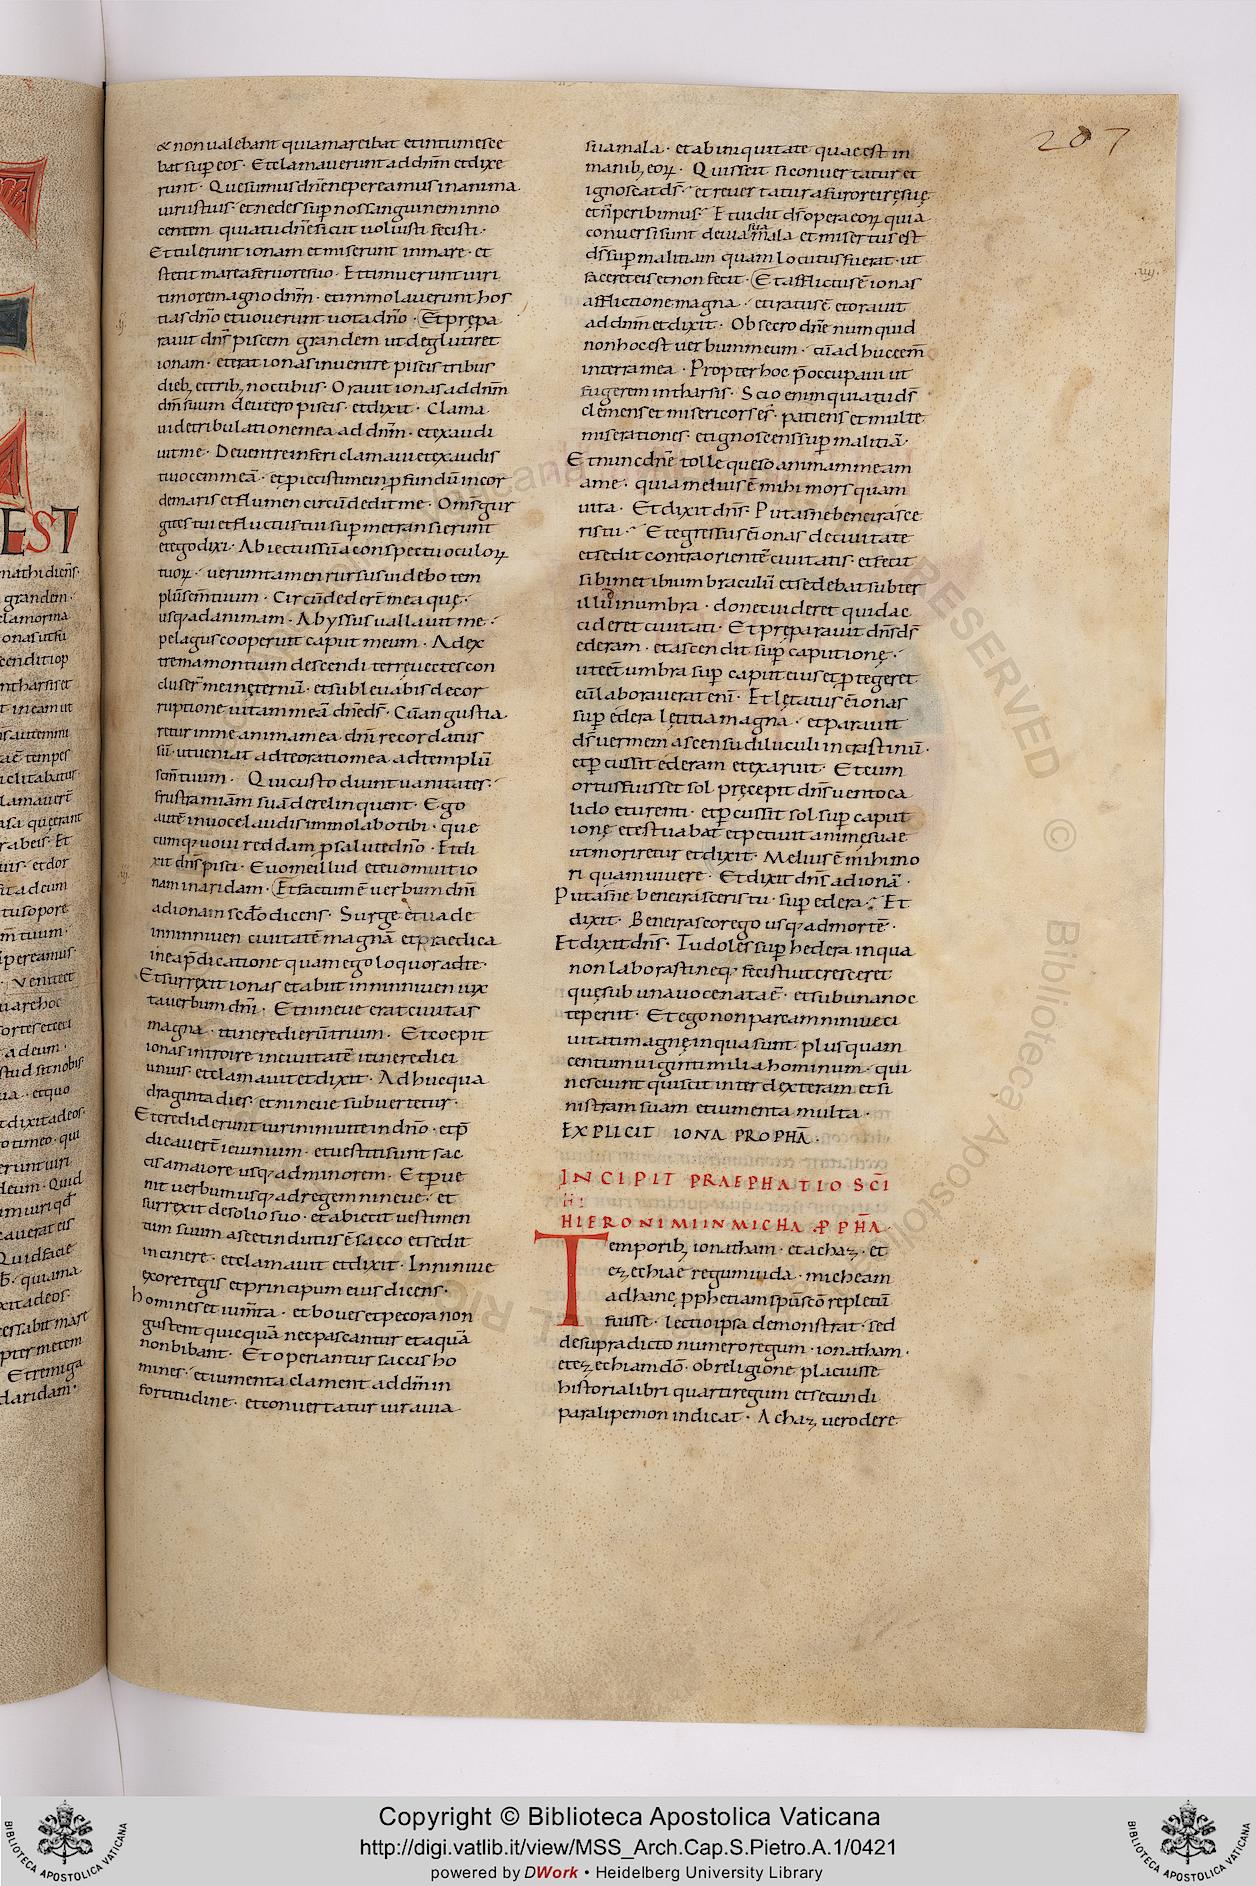 207
& non ualebant quia mare ibat et intumesce
bat sup̄ eos · Et clamauerunt ad dnm̄ et dixe
runt · Quesumus dn̄e ne pereamus in anima
uiri istius · et ne des sup̄ nos sanguinem inno
centem · quia tu dn̄e sicut uoluisti fecisti ·
Et tulerunt ionam et miserunt in mare · et
stetit mare a feruore suo · Et timuerunt uiri
timore magno dnm̄ · et immolauerunt hos
tias dn̄o et uouerunt uota dn̄o · Et prępa
rauit dn̄s piscem grandem ut deglutiret
ionam · et erat ionas in uentre piscis tribus
dieb; et trib; noctibus · Orauit ionas ad dnm̄
dm̄ suum de utero piscis · et dixit · Clama
ui de tribulatione mea ad dnm̄ · et exaudi
uit me · De uentre inferi clamaui et exaudis
ti uocem meā · et p̱iecisti me in p̱fundū in cor
de maris et flumen circūdedit me · Om̄s gur
gites tui et fluctus tui sup̄ me transierunt
et ego dixi · Abiectus sū a conspectu oculoꝝ
tuoꝝ · uerumtamen rursus uidebo tem
plū sc̄m tuum · Circūdeder̄t me aquę ·
usq; ad animam · Abyssus uallauit me ·
pelagus cooperuit caput meum · Ad ex
trema montium descendi terrę uectes con
cluser̄ me in ęternū · et subleuabis de cor
ruptione uitam meā dn̄e ds̄ · Cū angustia
retur in me anima mea dnī recordatus
sū · ut ueniat ad te oratio mea ad templū
sc̄m tuum · Qui custodiunt uanitates ·
frustra miam̄ suā derelinquent · Ego
autē in uoce laudis immolabo tibi · que
cumq; uoui reddam p̱ salute dn̄o · Et di
xit dn̄s pisci · Euome illud et euomuit io
nam in aridam · Et factum ē uerbum dnī
ad ionam sec̄do dicens · Surge et uade
in niniuen ciuitatē magnā et praedica
in ea p̄dicatione quam ego loquor ad te ·
Et surrexit ionas et abiit in niniuen iux
ta uerbum dnī · Et nineue erat ciuitas
magna · itinere dierū trium · Et coepit
ionas introire in ciuitatē itinere diei
unius · et clamauit et dixit · Adhuc qua
draginta dies · et nineue subuertetur ·
Et crediderunt uiri niniuite in dn̄o · et p̄
dicauer̄t ieiunium · et uestiti sunt sac
cis a maiore usq; ad minorem · Et p̱ue
nit uerbum usq; ad regem nineue · et
surrexit de solio suo · et abiecit uestimen
tum suum a se et indutus ē sacco et sedit
in cinere · et clamauit et dixit · In niniue
ex ore regis et principum eius dicens ·
homines et ium̄ta · et boues et pecora non
gustent quicquā nec pascantur et aquā
non bibant · Et operiantur saccis ho
mines · et iumenta clament ad dnm̄ in
fortitudine · et conuertatur uir a uia
sua mala · et ab iniquitate quae est in
manib; eoꝝ · Quis scit si conuertatur et
ignoscat ds̄ · et reuertatur a furore irę suę
et n̄ peribimus · Et uidit ds̄ opera eoꝝ quia
conuersi sunt de uia sua mala et misertus est
ds̄ sup̄ malitiam quam locutus fuerat · ut
faceret eis et non fecit · Et afflictus ē ionas
afflictione magna · et iratus ē et orauit
ad dnm̄ et dixit · Obsecro dn̄e numquid
non hoc est uerbum meum · cū adhuc eem̄
in terra mea · Propter hoc p̄occupaui ut
fugerem in tharsis · Scio enim quia tu ds̄
clēmens et misericors es̄ · patiens et multe
miserationes · et ignoscens sup̄ malitiā ·
Et nunc dn̄e tolle quęso animam meam
a me · quia melius ē mihi mors quam
uita · Et dixit dn̄s · Putasne bene irasce
ris tu · Et egressus ē ionas de ciuitate
et sedit contra orientē ciuitatis · et fecit
sibimet ibi umbraculū et sedebat subter
illū in umbra · donec uideret quid ac
cideret ciuitati · Et pręparauit dn̄s ds̄
ederam · et ascendit sup̄ caput ionę ·
ut eēt umbra sup̄ caput eius et p̱tegeret
eū laborauerat enī · Et lętatus ē ionas
sup̄ edera lętitia magna · et parauit
ds̄ uermem ascensu diluculi in crastinū ·
et p̱cussit ederam et exaruit · Et cum
ortus fuisset sol pręcepit dn̄s uento ca
lido et urenti · et p̱cussit sol sup̄ caput
ionę et estuabat et petiuit animę suae
ut moriretur et dixit · Melius ē mihi mo
ri quam uiuere · Et dixit dn̄s ad ionā ·
Putasne bene irasceris tu · sup̄ edera · Et
dixit · Bene irascor ego usq; ad mortē ·
Et dixit dn̄s · Tu doles sup̄ hedera in qua
non laborasti neq; fecisti ut cresceret
quę sub una uoce nata ē · et sub una noc
te periit · Et ego non parcam niniue ci
uitati magnę in qua sunt plus quam
centum uiginti milia hominum · qui
nesciunt quid sit inter dexteram et si
nistram suam et iumenta multa ·
EXPLICIT IONA PROPHĀ ·
INCIPIT PRAEPHATIO SC̄I
HI
HIERONIMI IN MICHA PPHĀ ·
Temporib; ionatham · et achaz · et
ezechiae regum iuda · micheam
ad hanc p̱phetiam sp̄u sc̄o repletū
fuisse · lectio ipsa demonstrat · sed
de supradicto numero regum · ionatham ·
et ezechiam dō · ob religione placuisse
historia libri quarti regum et secundi
paralipemon indicat · Achaz uero dere
EST
Copyright © Biblioteca Apostolica Vaticana
http://digi.vatlib.it/view/MSS_Arch.Cap.S.Pietro.A.1/0421
powered by DWork • Heidelberg University Library
BIBLIOTECA APOSTOLICA VATICANA
BIBLIOTECA APOSTOLICA VATICANA